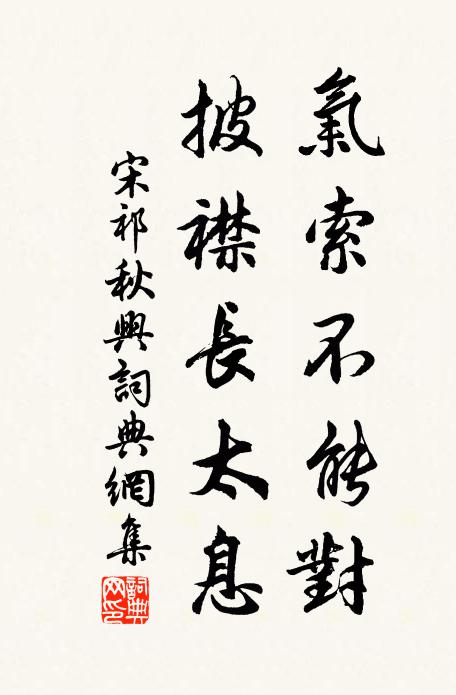 氣索不能對
披襟長太息
宋祁秋興詞典網集
詞典網印